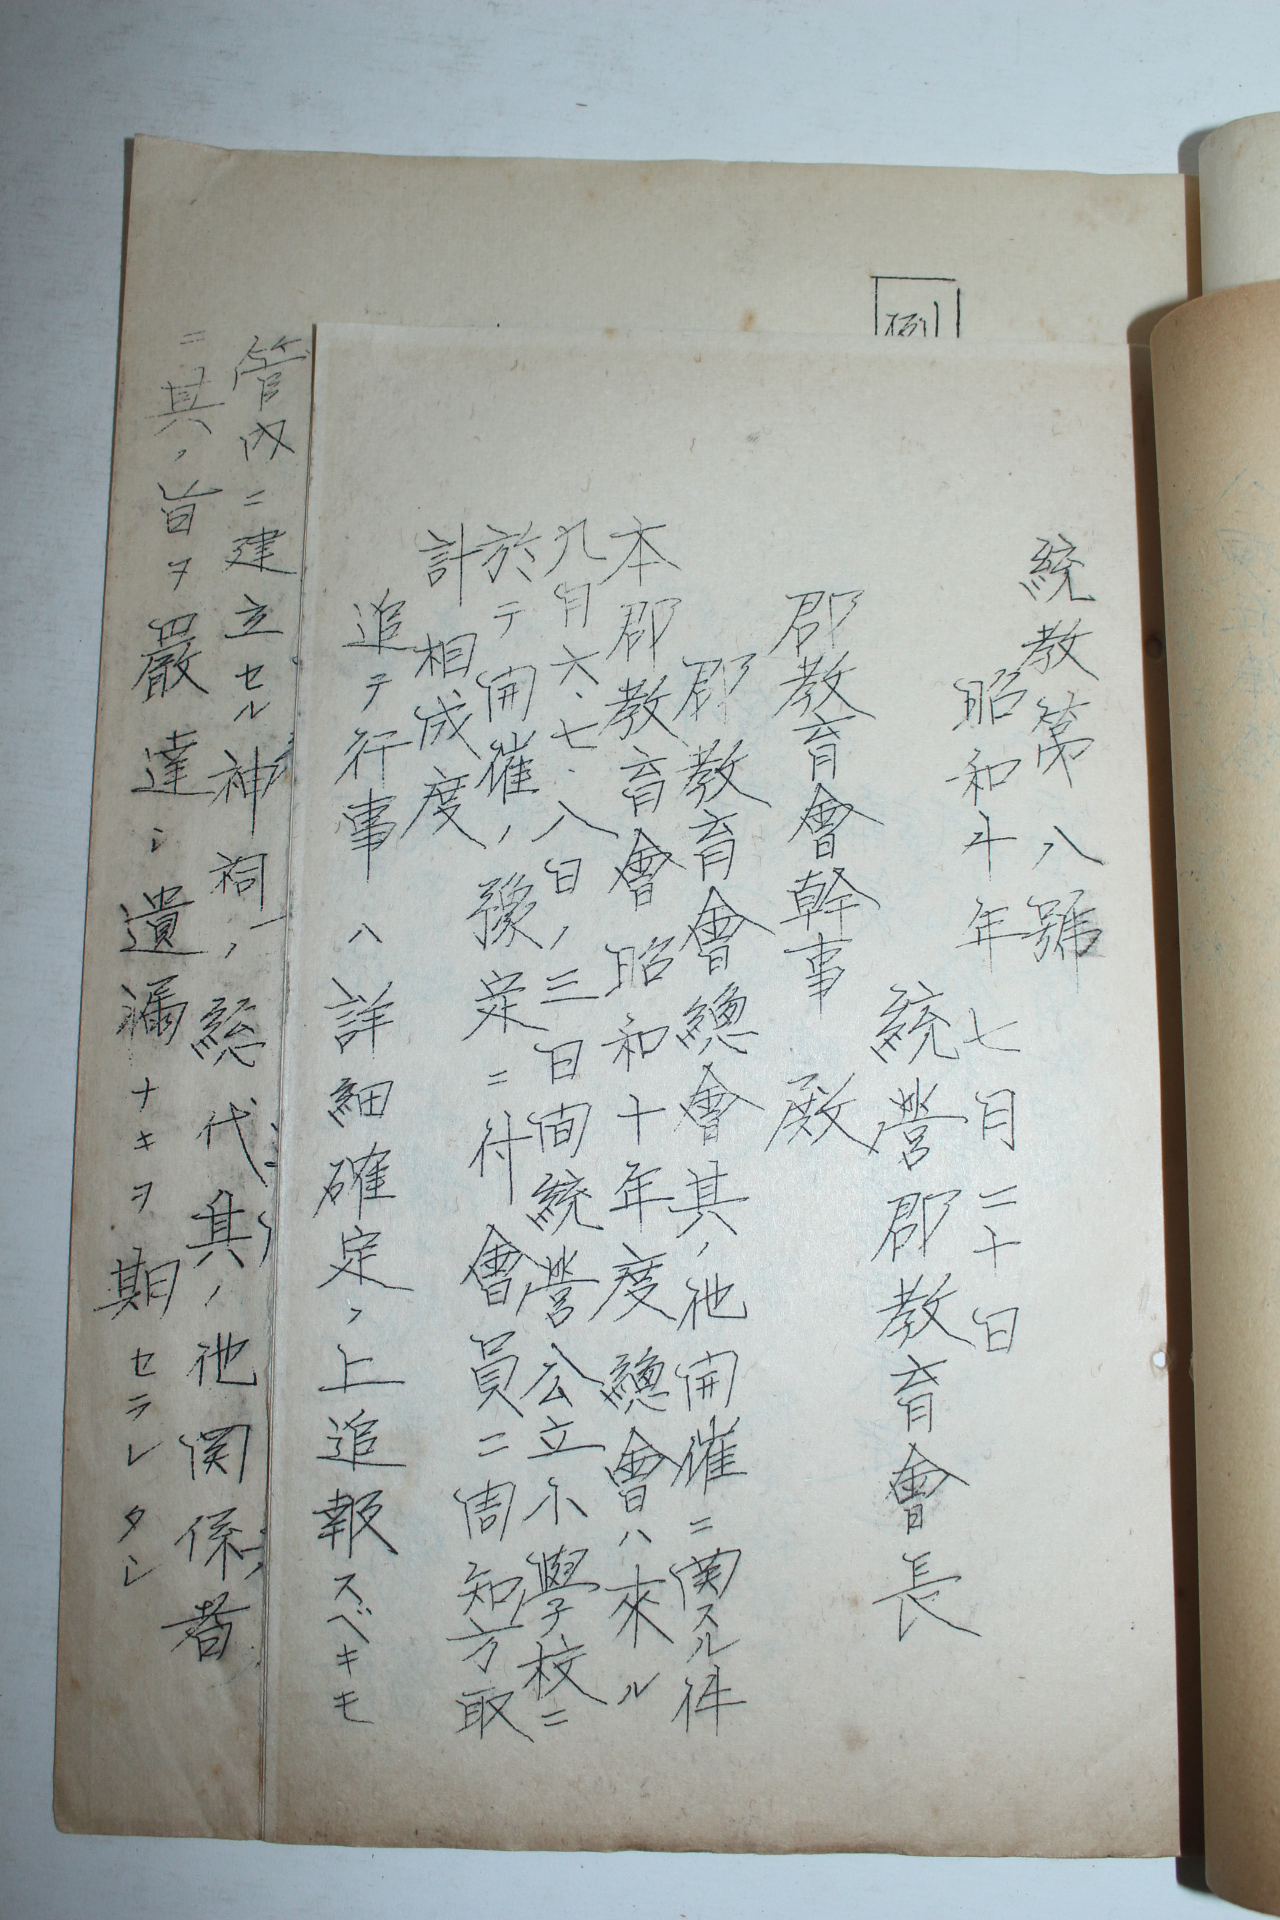 統教第八號
昭和十年七月二十日
統營郡教育會長
郡教育會幹事 殿
郡教育會總會其ノ他開催ニ関スル件
本郡教育會昭和十年度總會ハ來ル
九月六、七、八日ノ三日間統營公立小學校ニ
於テ開催ノ豫定ニ付會員ニ周知方取
計相成度
追テ行事ハ詳細確定ノ上追報スベキモ
管内ニ建立セル神祠ノ総代其ノ他関係者
ニ其ノ旨ヲ嚴達シ遺漏ナキヲ期セラレタシ